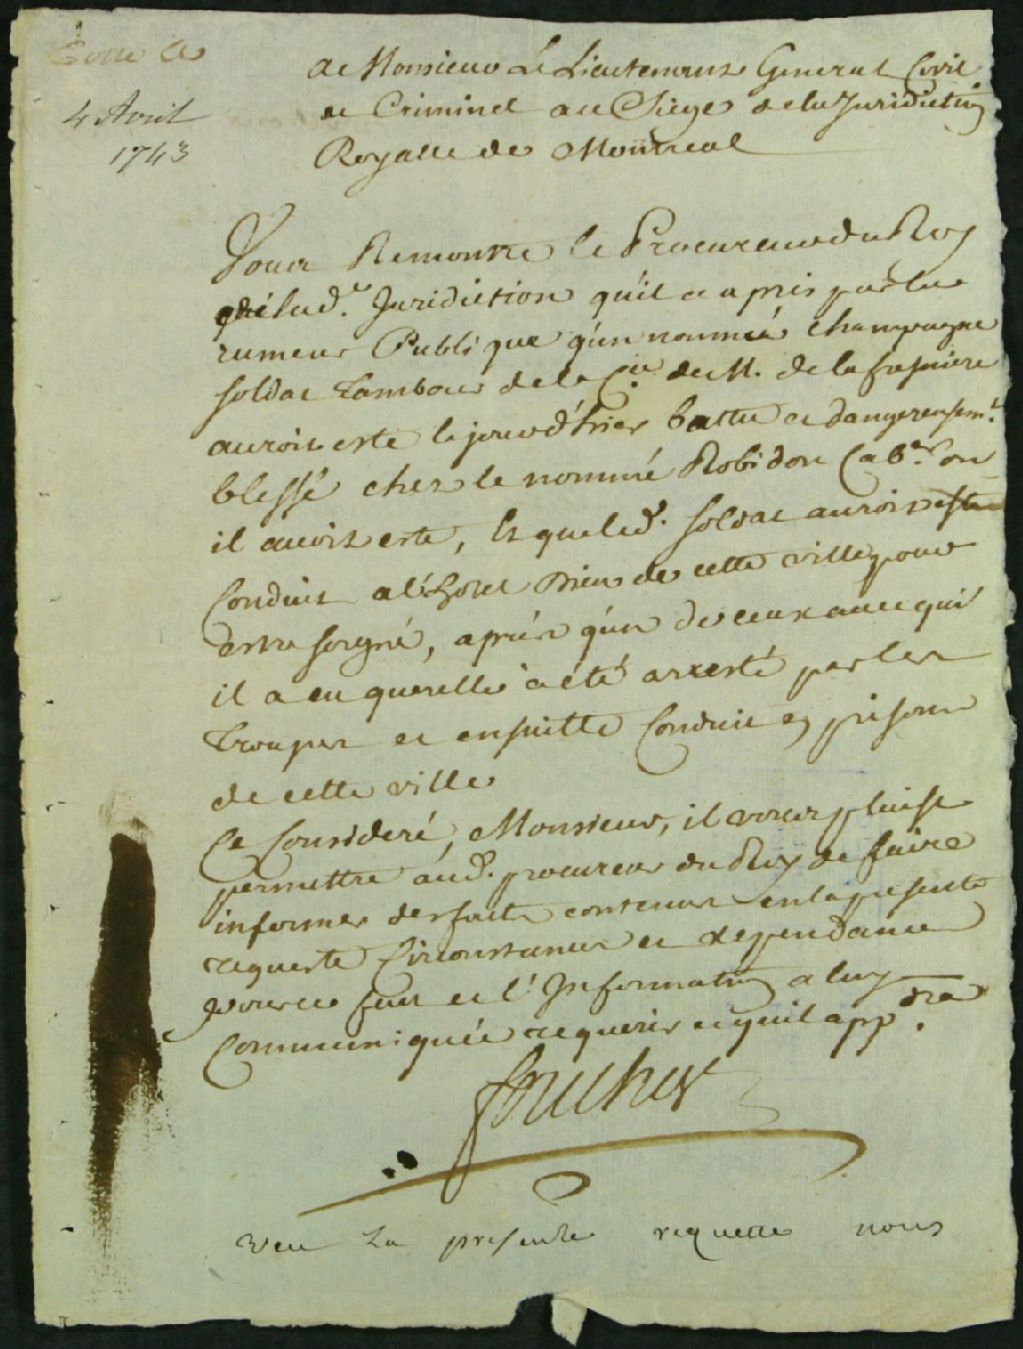 Cotte A
4 Avril
1743
A Monsieur Le Lieutenant General Civil
et Criminel au Siege de la Juridiction
Royalle de Montreal
Vous Remontre le Procureur du Roy
de lad.e Juridiction qu'il a apris par la
rumeur Publique qu'un nommé champagne
soldat tambour de la C.ie de M. de la fresniere
auroit esté le jour d'hier battu et dangereusem.t
blessé chez le nommé Robidou Cab.er ou
il auoit esté, Et que led. soldat auroit esté
Conduit a l'hotel Dieu de cette ville pour
estre soigné, aprés qu'un de ceux auec qui
il a eu querelle a été arresté par les
troupes et ensuitte Conduit es prisons
de cette ville
Ce Consideré, Monsieur, il vous plaise
permettre aud. procureur du Roy de faire
informer des faits contenus en la presente
requeste Circonstances et dependances
pour ce fait et l'Information a luy
Communiquée requerir ce qu'il app.dra
foucher
Veu La presente requette nous